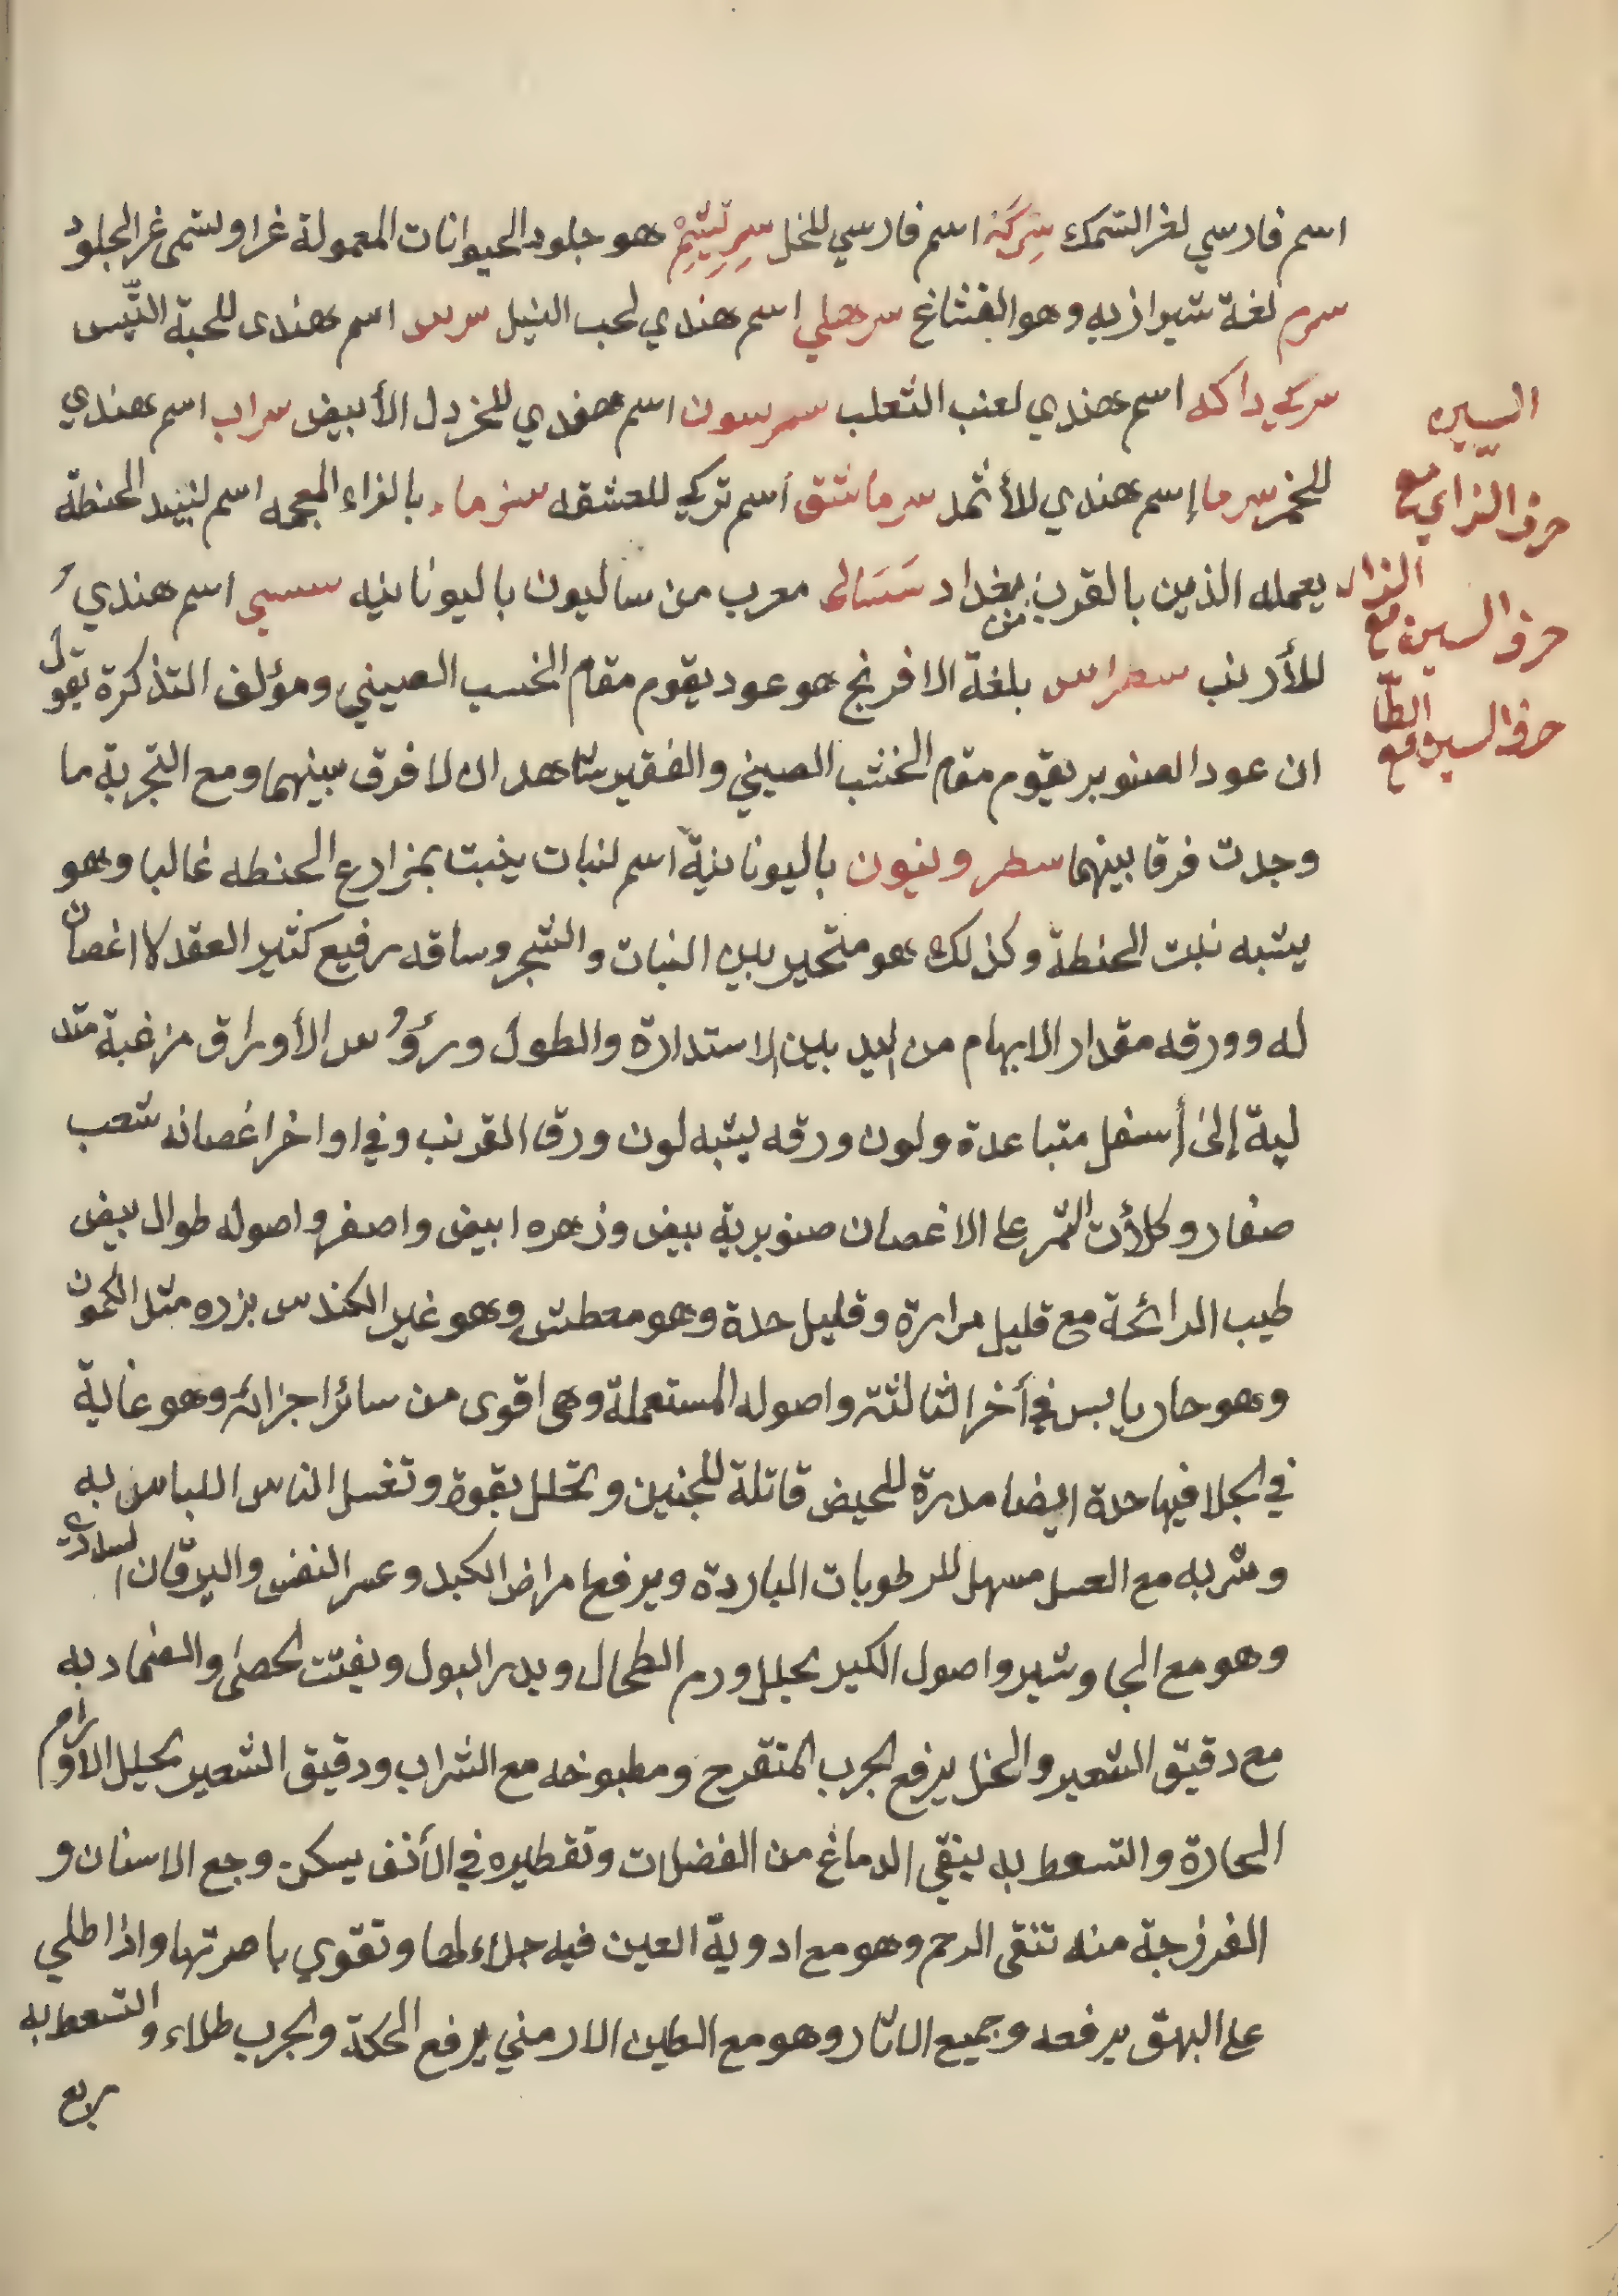 اسم فارسي لغر السمك سِركَه اسم فارسي للخل سِرِيشِمْ هو جلود الحيوانات المعمولة غرا ويسمى غر الجلود
سرم لغة شيرازيه وهو الفشاغ سرهلي اسم هندي لحب النيل سرس اسم هندى للحبة التّيس
سركي داكه اسم هندي لعنب الثعلب سمرسون اسم هندي للخردل الأبيض سراب اسم هندي
للخمر سرما إسم هندي للأثمد سرماشق أسم تركي للعشقه سزماء بالزاء المعجمه اسم لنبيذ الحنطة
يعمله الذين بالقرب من بغداد سَسَالى معرب من ساليون باليونانيه سسي اسم هندي
للأرنب سطراس بلغة الافرنج هو عود يقوم مقام الخسب الصيني ومؤلف التذكرة يقول
ان عود الصنوبر يقوم مقام الخشب الصيني والفقير شاهد ان لا فرق بينهما ومع التجربة ما
وجدت فرقا بينهما سطرونيون باليونانية اسم لنبات ينبت بمزارع الحنطه غالبا وهو
يشبه نبت الحنطة وكذلك هو متحير بين النبات والشجر وساقه رفيع كثير العقد لا اغصان
له وورقه مقدار الابهام من اليد بين الاستدارة والطول ورؤُس الأوراق مزغبة متد
لية إلى أسفل متباعدة ولون ورقه يشبه لون ورق القرنب وفي اواخر اغصانه شعب
صغار وكلأن الثمر على الاغصان صنوبرية بيض وزهره ابيض واصفر واصوله طوال بيض
طيب الرائحة مع قليل مرارة وقليل حدة وهو معطش وهو غير الكندس بزره مثل الكمون
وهو حار يابس في أخر الثالثة واصوله المستعملة وهى اقوى من سائر اجزائه وهو غاية
في الجلا فيها حدة ايضا مدرة للحيض قاتلة للجنين وتحلل بقوة وتغسل الناس اللباس به
وشربه مع العسل مسهل للرطوبات الباردة ويرفع امراض الكبد وعسر النفس واليرقان
وهو مع الجاوشير واصول الكبر يحلل ورم الطحال ويدر البول ويفتت الحصى والضماد به
مع دقيق الشعير والخل يرفع الجرب المتقرح ومطبوخه مع الشراب ودقيق الشعير يحلل الاورام
الحارة والتسعط به ينقي الدماغ من الفضلات وتقطيره في الأنف يسكن وجع الاسنان و
الفرزجة منه تنقى الرحم وهو مع ادوية العين فيه جلاء لها وتقوي باصرتها واذا طلي
على البهق يرفعه وجميع الاثار وهو مع الطين الارمني يرفع الحكة والجرب طلاء والتسعط به
يرفع
السين
حرف الزاي مع
الزاء
حرف السين مع
الطّا
حرف السين مع